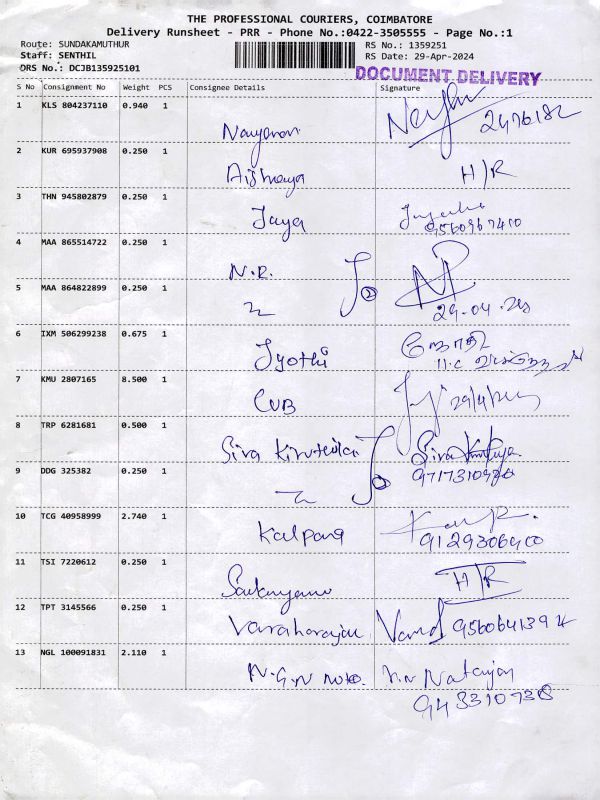 THE PROFESSIONAL COURIERS, COIMBATORE
Delivery Runsheet - PRR - Phone No.:0422-3505555 - Page No.:1
Route: SUNDAKAMUTHUR RS No.: 1359251
Staff: SENTHIL RS Date: 29-Apr-2024
DRS No.: DCJB135925101
DOCUMENT DELIVERY
S No Consignment No Weight PCS Consignee Details Signature
1 KLS 804237110 0.940 1
Narayanan 2476182
2 KUR 695937908 0.250 1
Aishwarya H/R
3 THN 945802879 0.250 1
Jaya
9560967400
4 MAA 865514722 0.250 1
N.R. 2 NP
5 MAA 864822899 0.250 1
29.04.24
6 IXM 506299238 0.675 1
Jyothi
7 KMU 2807165 8.500 1
CUB 29/4/2024
8 TRP 6281681 0.500 1
Siva
9 DDG 325382 0.250 1
2
10 TCG 40958999 2.740 1
Kalpana
9129306900
11 TSI 7220612 0.250 1
H/R
12 TPT 3145566 0.250 1
Varaharajan
13 NGL 100091831 2.110 1
N.G.N N.N Natarjan